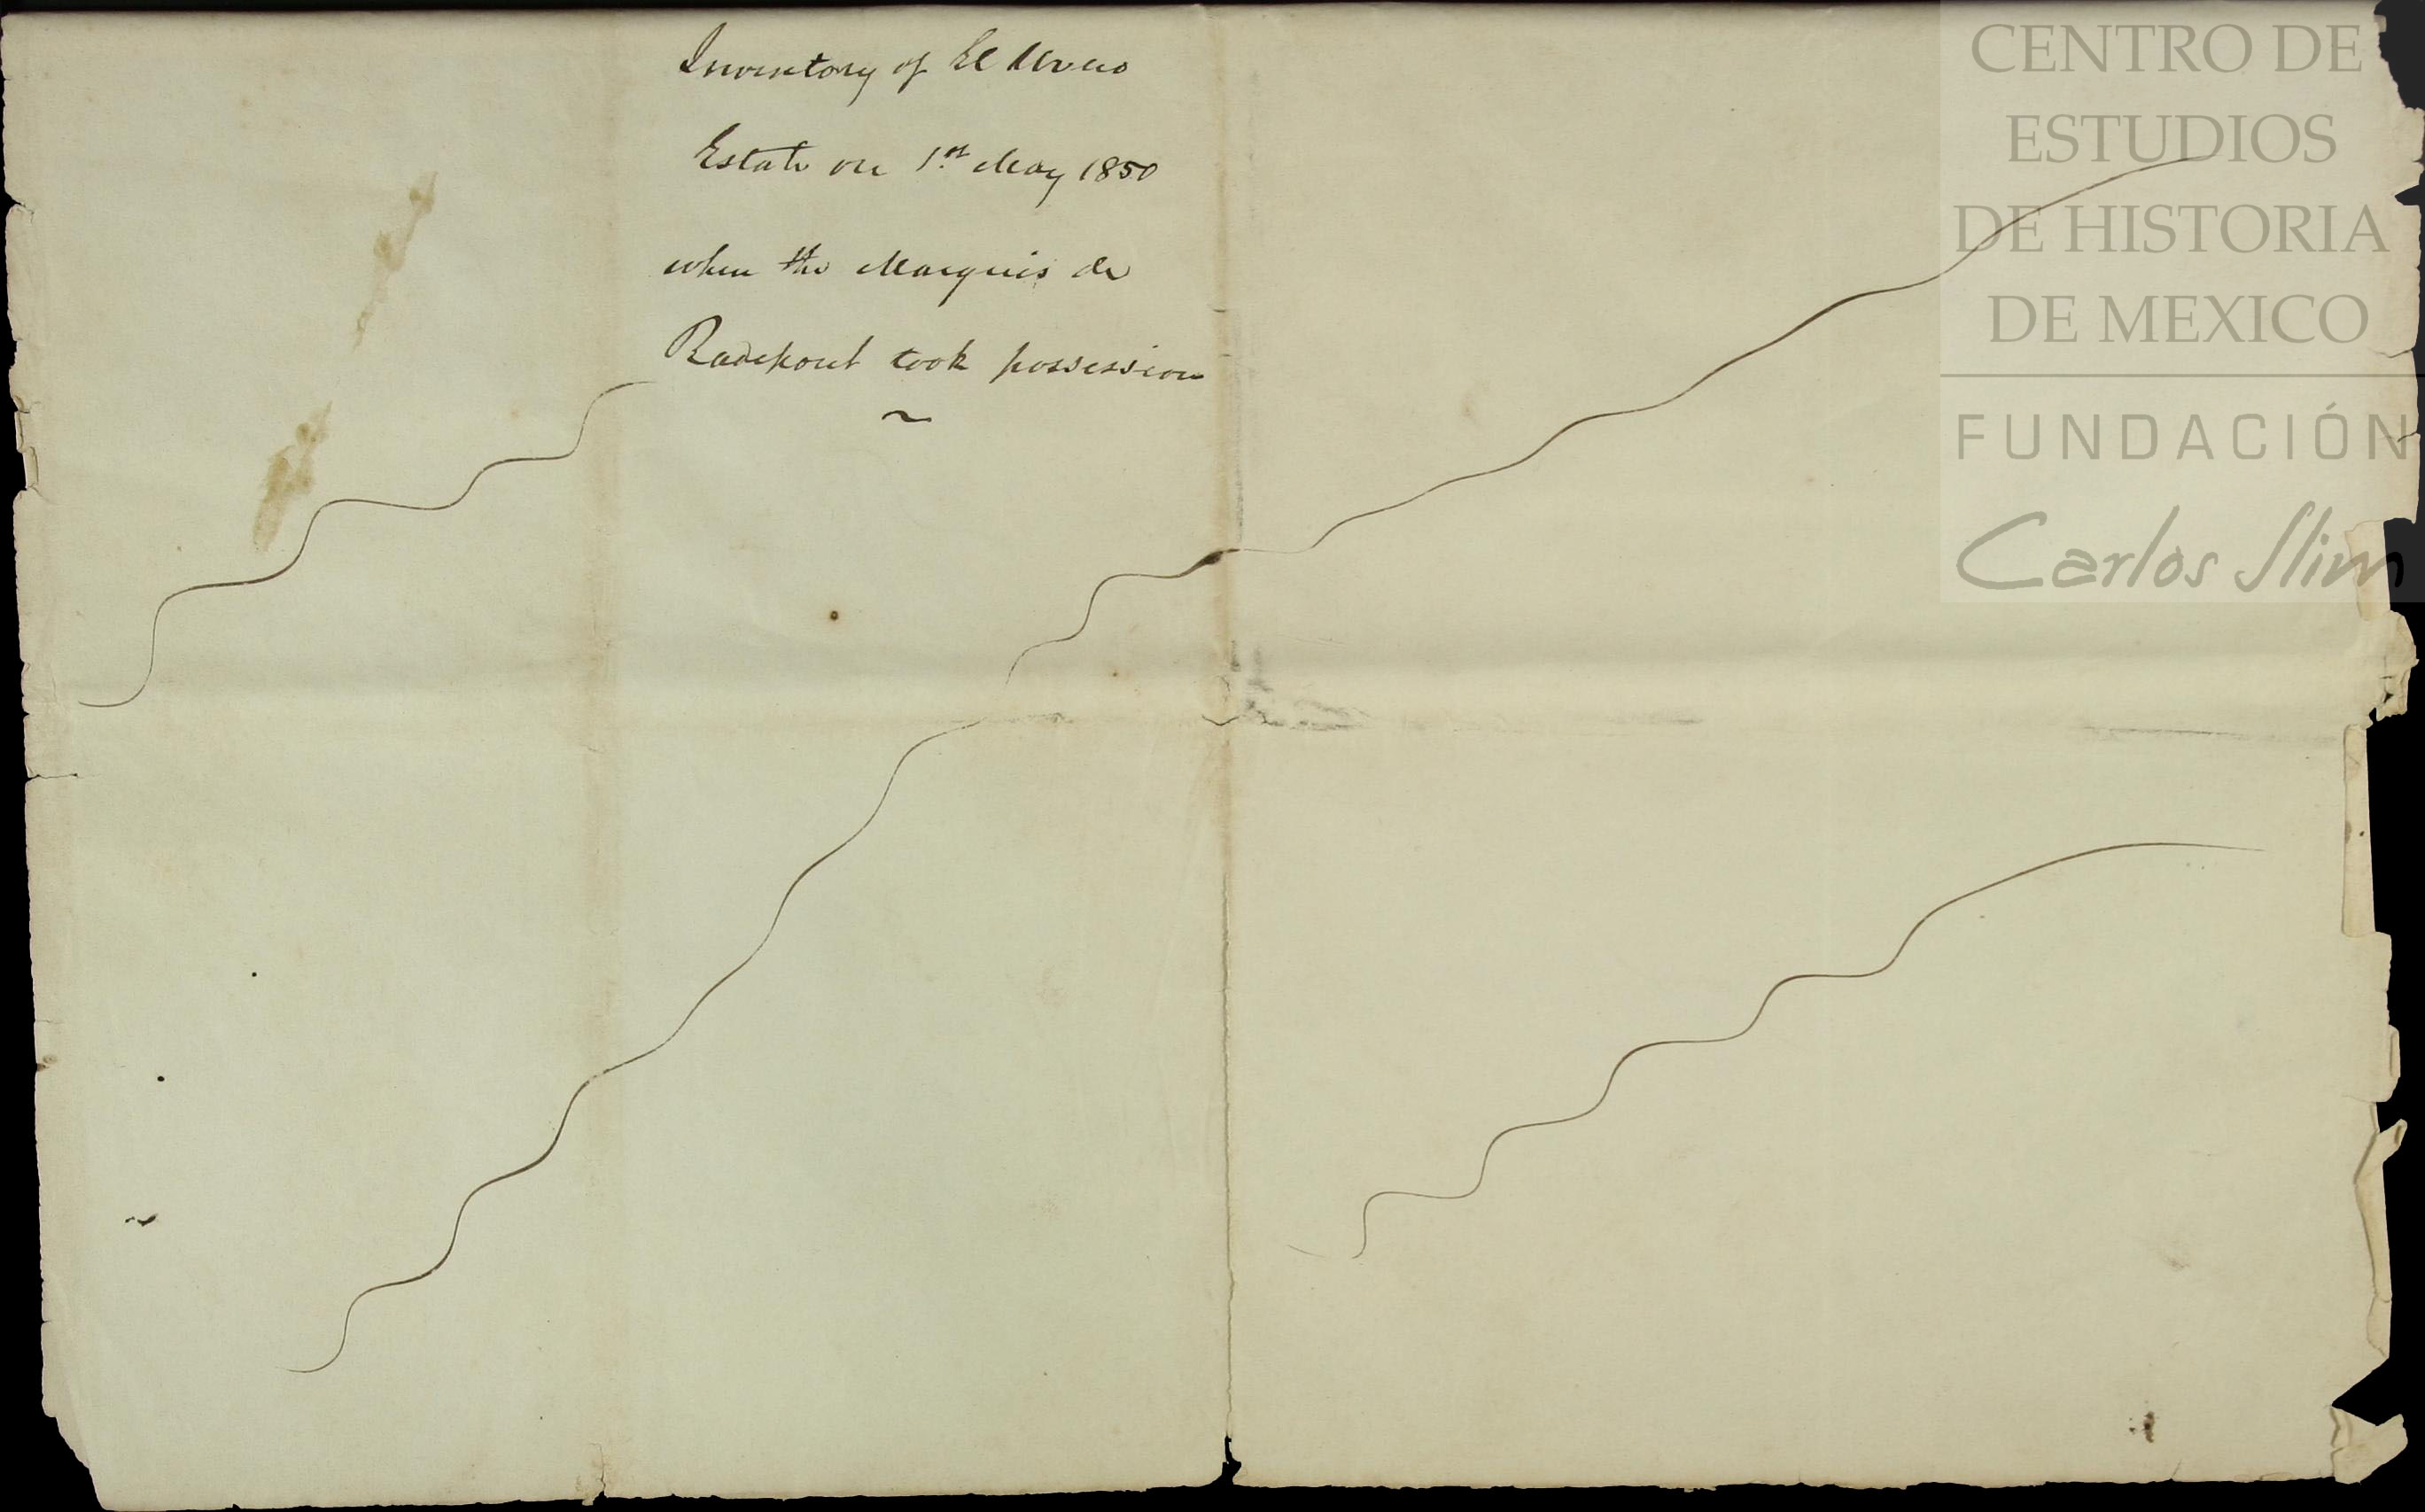 Inventory of El Uvero
Estate on 1st May 1850
when the Marquis de
Radepont took possession
CENTRO DE
ESTUDIOS
DE HISTORIA
DE MEXICO
FUNDACIÓN
Carlos Slim